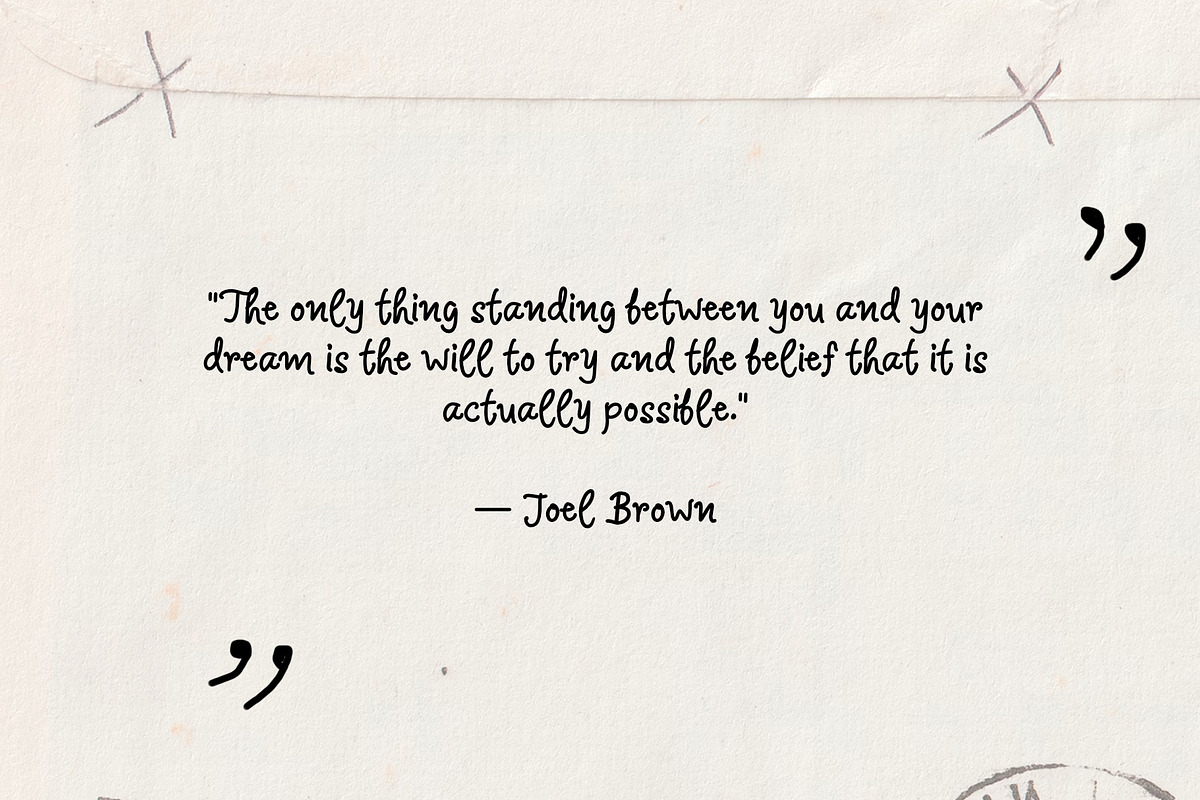 "The only thing standing between you and your
dream is the will to try and the belief that it is
actually possible."
— Joel Brown